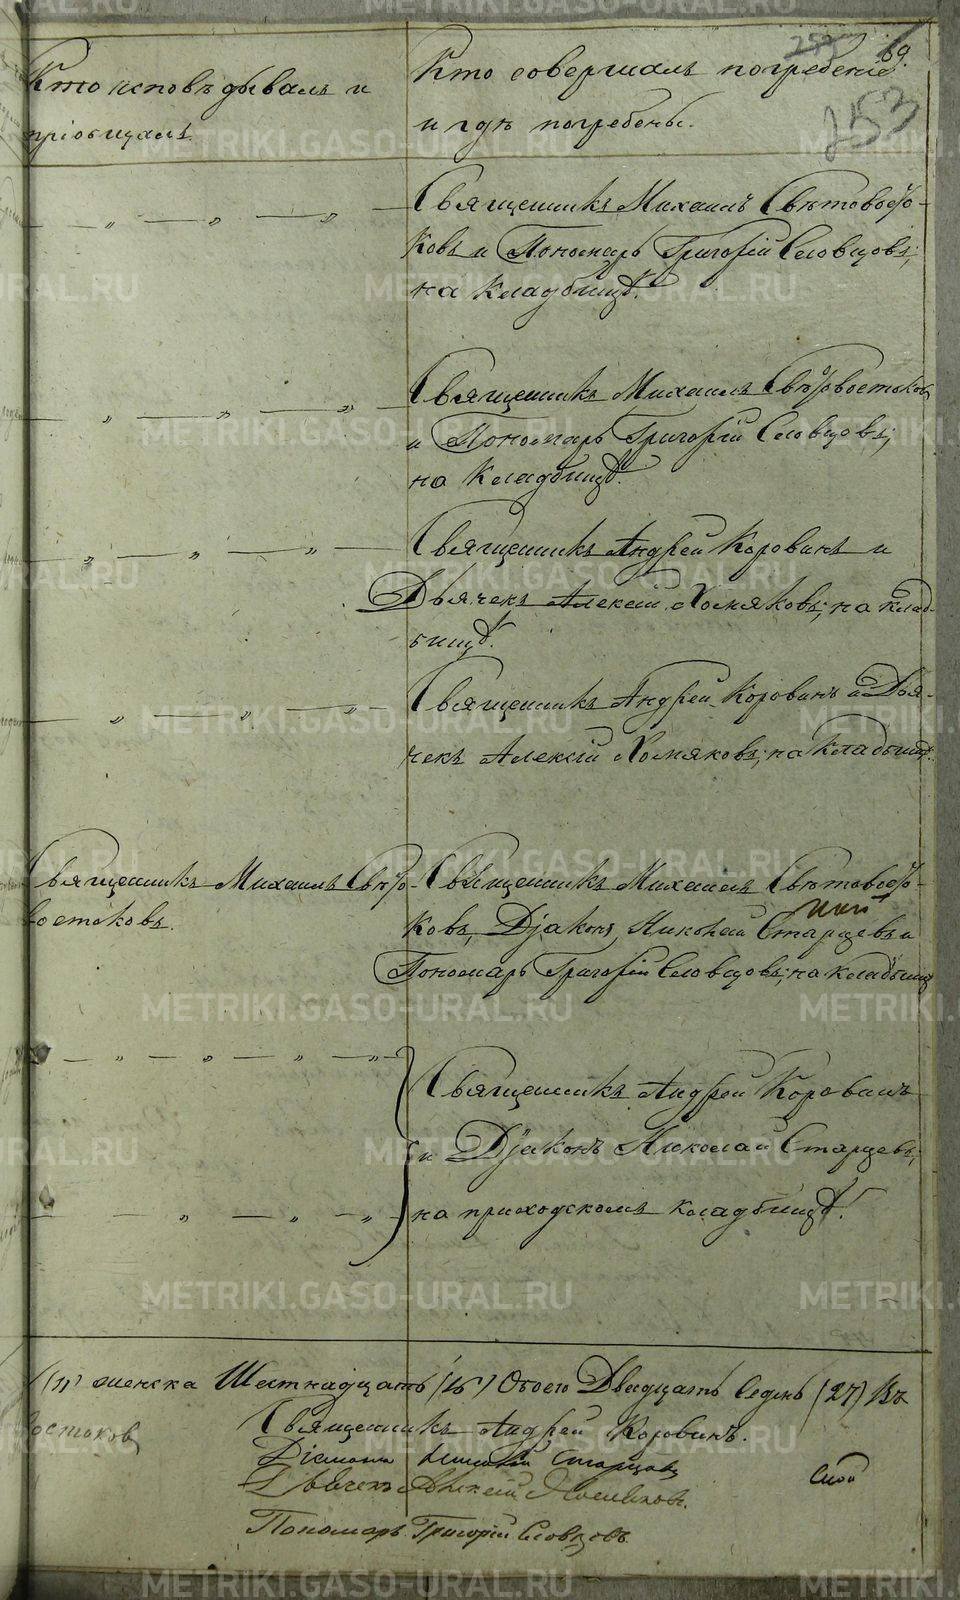 69.
253
Кто исповѣдывалъ и
пріобщалъ.
Кто совершалъ погребеніе
и гдѣ погребены.
Священникъ Михаилъ Свѣтовосто-
ковъ и Пономарь Григорій Словцовъ;
на кладбищѣ.
Священникъ Михаилъ Свѣтовостоковъ
и Пономарь Григорій Словцовъ;
на кладбищѣ.
Священникъ Андрей Коровинъ и
Дьячекъ Алексій Хомяковъ; на клад-
бищѣ.
Священникъ Андрей Коровинъ и Дья-
чекъ Алексій Хомяковъ; на кладбищѣ.
Священникъ Михаилъ Свѣто-
востоковъ.
Священникъ Михаилъ Свѣтовосто-
ковъ, Діаконъ Николай Старцевъ и
Пономарь Григорій Словцовъ; на кладбищѣ
Священникъ Андрей Коровинъ
и Діаконъ Николай Старцевъ;
на приходскомъ кладбищѣ.
(11) женска Шестнадцать (16) Обоего Двадцать Седмь (27) Въ
востоковъ
Священникъ Андрей Коровинъ.
Діаконъ Николай Старцовъ
Дьячекъ Алексій Хомяковъ.
Пономарь Григорій Словцовъ
METRIKI.GASO-URAL.RU